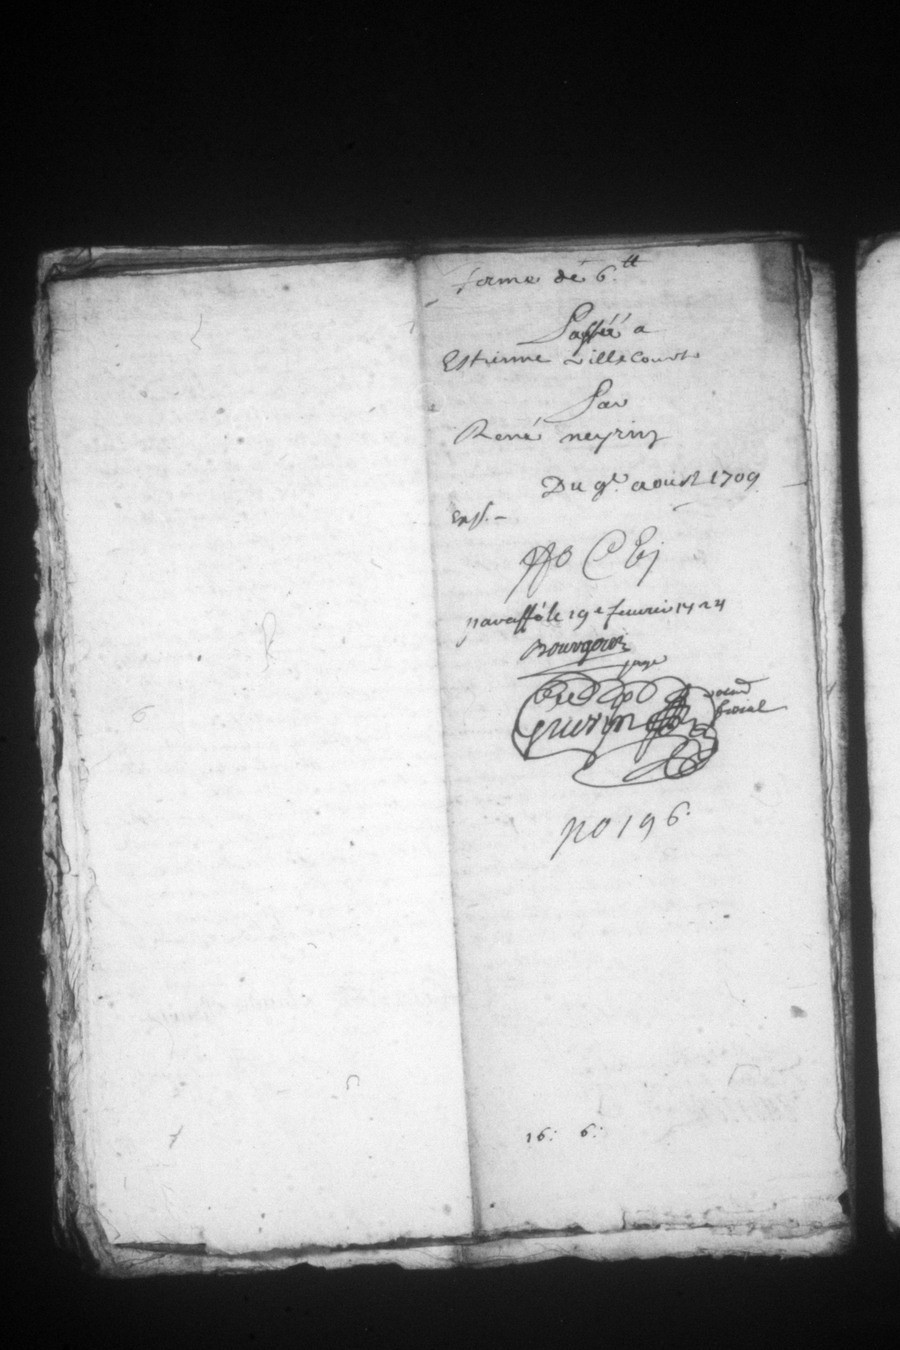 ferme de 6.tt
Passéé a
Estienne Villecourt
Par
René neyrin
Du 9e. aoust 1709
Exp.
paraffé le 19e feuvrier 1724
Bourgoin
juge
guerin
no 196.
16: 6: